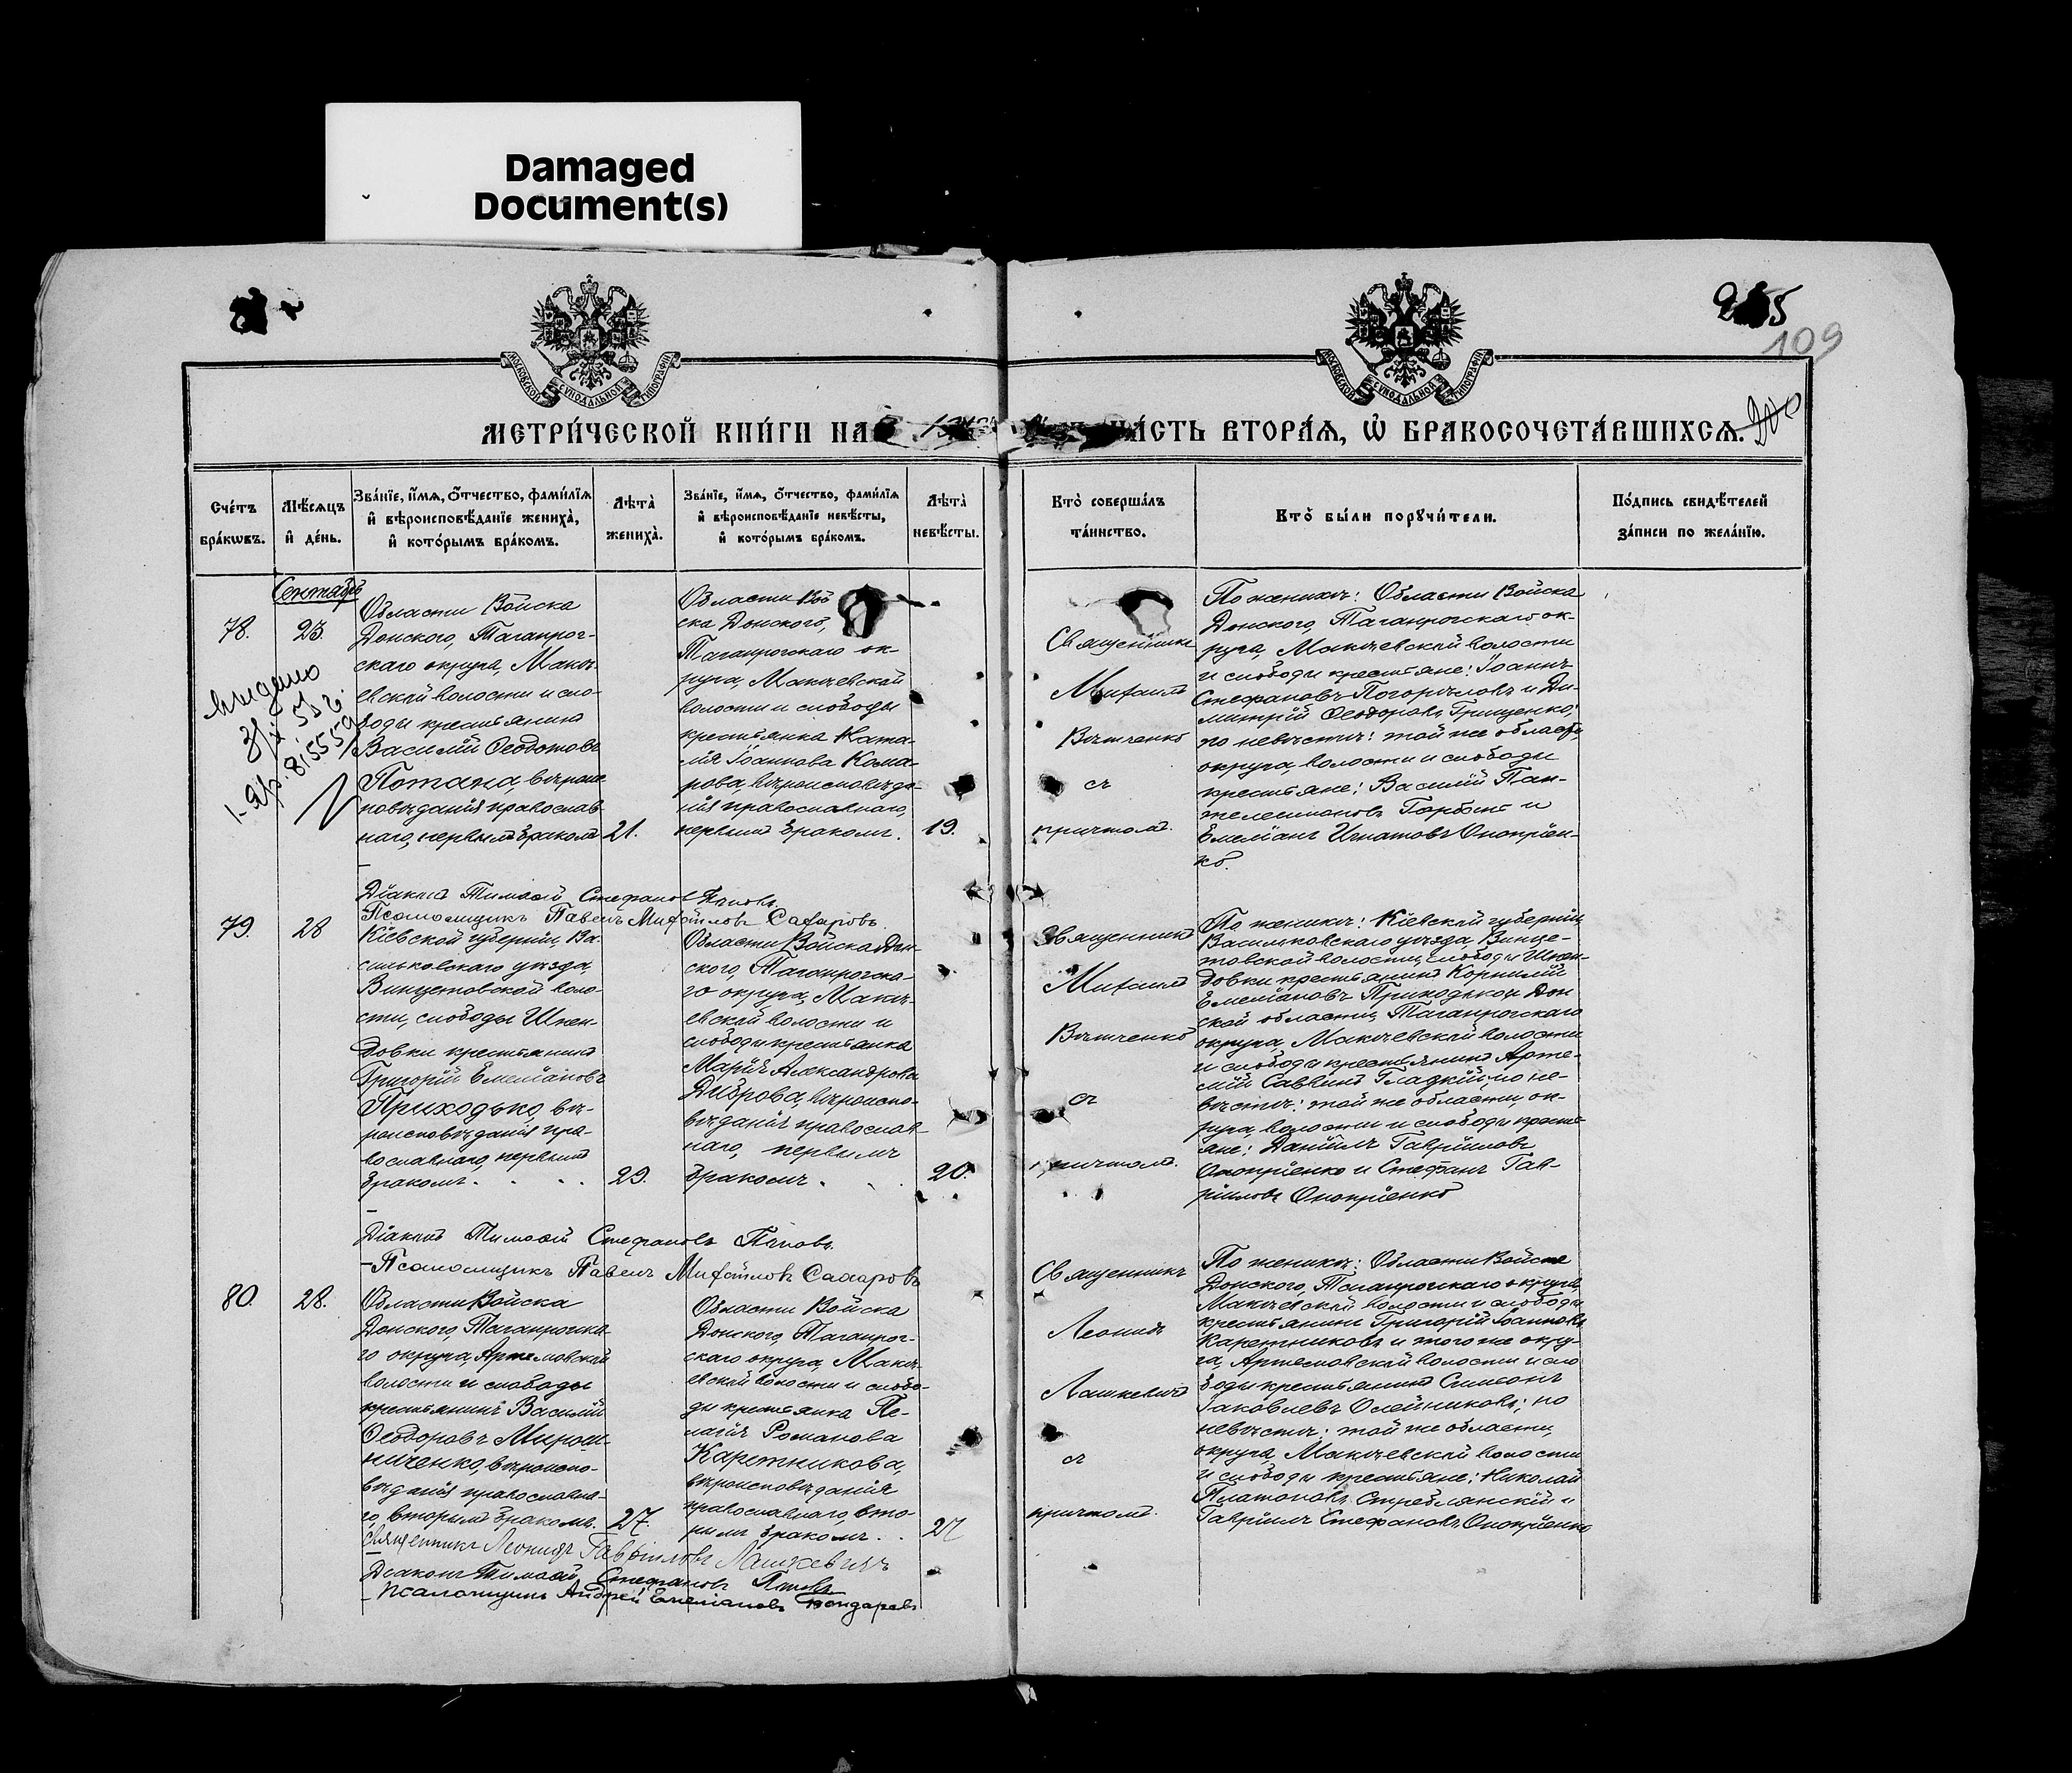 Damaged
Document(s)
109
МОСКОВСКОЙ СѴНОДАЛЬНОЙ ТИПОГРАФІИ
МОСКОВСКОЙ СѴНОДАЛЬНОЙ ТИПОГРАФІИ
МЕТРИ́ЧЕСКОЙ КНИ́ГИ НА
ЧА́СТЬ ВТОРА́Ѧ, Ѡ҆ БРАКОСОЧЕТА́ВШИХСѦ.
Сче́тъ бра́кѡвъ.
Мѣ́сѧцъ и҆ де́нь.
Зва́нїе, и҆́мѧ, ѻ҆́тчество, фами́лїѧ и҆ вѣроисповѣ́данїе жениха̀, и҆ кото́рымъ бра́комъ.
Лѣта̀ жениха̀.
Зва́нїе, и҆́мѧ, ѻ҆́тчество, фами́лїѧ и҆ вѣроисповѣ́данїе невѣ́сты, и҆ кото́рымъ бра́комъ.
Лѣта̀ невѣ́сты.
Кто̀ соверша́лъ та́инство.
Кто̀ бы́ли порꙋчи́тели.
По́дпись свидѣ́телей за́писи по жела́нїю.
Сентябрь
78.
23.
Выдано
Области Войска
Донского, Таганрог-
скаго округа, Макѣ-
евской волости и сло-
боды крестьянинъ
Василій Ѳеодотовъ
Потана, вѣроис-
повѣданія православ-
наго, первымъ бракомъ
21.
Области Вой-
ска Донского,
Таганрогскаго ок-
руга, Макѣевской
волости и слободы
крестьянка Ната-
лія Іоаннова Кома-
рова, вѣроисповѣда-
нія православнаго,
первымъ бракомъ.
19.
Священникъ
Михаилъ
Вѣтченко
съ
причтомъ.
По женихѣ: Области Войска
Донского, Таганрогскаго ок-
руга, Макѣевской волости
и слободы крестьяне: Іоаннъ
Стефановъ Погорѣловъ и Ди-
митрій Ѳеодоровъ Грищенко;
по невѣстѣ: той же области,
округа, волости и слободы
крестьяне: Василій Пан-
телеимоновъ Горбан и
Емеліанъ Игнатовъ Оноприен-
ко.
Діаконъ Тимоѳей Стефановъ Поповъ.
Псаломщикъ Павелъ Михаиловъ Сахаровъ.
79.
28
Кіевской губерніи, Ва-
сильковскаго уѣзда,
Винцетовской воло-
сти, слободы Шпен-
довки крестьянинъ
Григорій Емеліановъ
Приходько, вѣ-
роисповѣданія пра-
вославнаго, первымъ
бракомъ.
29.
Области Войска Дон-
ского, Таганрогска-
го округа, Макѣ-
евской волости и
слободы крестьянка
Марія Александрова
Диброва, вѣроиспо-
вѣданія православ-
наго, первымъ
бракомъ.
20.
Священникъ
Михаилъ
Вѣтченко
съ
причтомъ.
По женихѣ: Кіевской губерніи,
Васильковскаго уѣзда, Винце-
товской волости, слободы Шпен-
довки крестьянинъ Корнилій
Емеліановъ Приходько и Дон-
ской области, Таганрогскаго
округа, Макѣевской волости
и слободы крестьянинъ Арте-
мій Саввинъ Гладкій; по не-
вѣстѣ: той же области, ок-
руга, волости и слободы кресть-
яне: Даніилъ Гавріиловъ
Оноприенко и Стефанъ Гав-
ріиловъ Оноприенко
Діаконъ Тимоѳей Стефановъ Поповъ.
Псаломщикъ Павелъ Михаиловъ Сахаровъ
80.
28.
Области Войска
Донского, Таганрогска-
го округа, Артемовской
волости и слободы
крестьянинъ Василій
Ѳеодоровъ Мирош-
ниченко, вѣроиспо-
вѣданія православна-
го, вторымъ бракомъ.
27.
Области Войска
Донского, Таганрог-
скаго округа, Макѣ-
евской волости и слобо-
ды крестьянка Пе-
лагія Романова
Каретникова,
вѣроисповѣданія
православнаго, вто-
рымъ бракомъ.
27
Священникъ
Леонидъ
Лашкевичъ
съ
причтомъ.
По женихѣ: Области Войска
Донского, Таганрогскаго округа,
Макѣевской волости и слободы
крестьянинъ Григорій Іоанновъ
Каретниковъ и того же окру-
га, Артемовской волости и сло-
боды крестьянинъ Симеонъ
Іаковлевъ Олейниковъ; по
невѣстѣ: той же области,
округа, Макѣевской волости
и слободы крестьяне: Николай
Платоновъ Стреблянскій и
Гавріилъ Стефановъ Оноприенко
Священникъ Леонидъ Гавріиловъ Лашкевичъ
Діаконъ Тимоѳей Стефановъ Поповъ.
Псаломщикъ Андрей Емеліановъ Бондаревъ